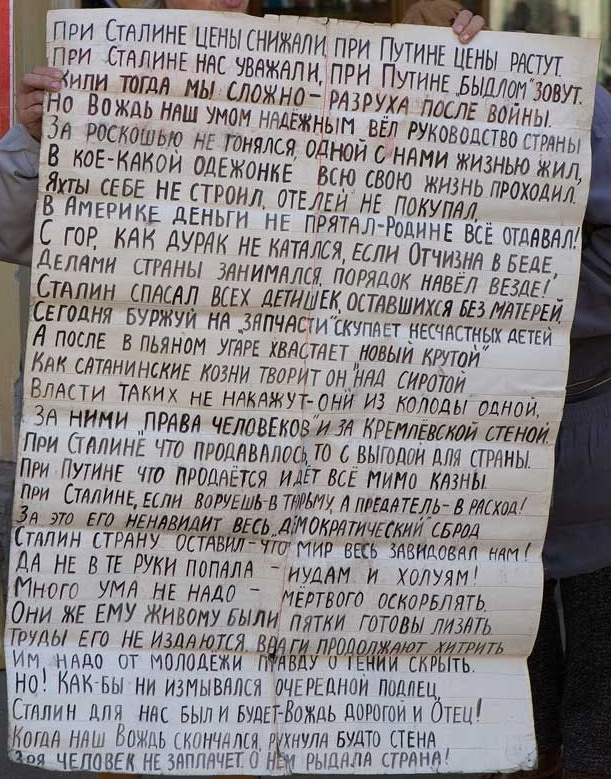 ПРИ СТАЛИНЕ ЦЕНЫ СНИЖАЛИ, ПРИ ПУТИНЕ ЦЕНЫ РАСТУТ.
ПРИ СТАЛИНЕ НАС УВАЖАЛИ, ПРИ ПУТИНЕ „БЫДЛОМ" ЗОВУТ.
ЖИЛИ ТОГДА МЫ СЛОЖНО – РАЗРУХА ПОСЛЕ ВОЙНЫ.
НО ВОЖДЬ НАШ УМОМ НАДЁЖНЫМ ВЁЛ РУКОВОДСТВО СТРАНЫ
ЗА РОСКОШЬЮ НЕ ГОНЯЛСЯ, ОДНОЙ С НАМИ ЖИЗНЬЮ ЖИЛ,
В КОЕ-КАКОЙ ОДЕЖОНКЕ ВСЮ СВОЮ ЖИЗНЬ ПРОХОДИЛ.
ЯХТЫ СЕБЕ НЕ СТРОИЛ, ОТЕЛЕЙ НЕ ПОКУПАЛ,
В АМЕРИКЕ ДЕНЬГИ НЕ ПРЯТАЛ-РОДИНЕ ВСЁ ОТДАВАЛ!
С ГОР, КАК ДУРАК НЕ КАТАЛСЯ, ЕСЛИ ОТЧИЗНА В БЕДЕ,
ДЕЛАМИ СТРАНЫ ЗАНИМАЛСЯ, ПОРЯДОК НАВЁЛ ВЕЗДЕ!
СТАЛИН СПАСАЛ ВСЕХ ДЕТИШЕК, ОСТАВШИХСЯ БЕЗ МАТЕРЕЙ,
СЕГОДНЯ БУРЖУЙ НА „ЗАПЧАСТИ" СКУПАЕТ НЕСЧАСТНЫХ ДЕТЕЙ
А ПОСЛЕ В ПЬЯНОМ УГАРЕ ХВАСТАЕТ „НОВЫЙ КРУТОЙ"
КАК САТАНИНСКИЕ КОЗНИ ТВОРИТ ОН НАД СИРОТОЙ
ВЛАСТИ ТАКИХ НЕ НАКАЖУТ-ОНИ ИЗ КОЛОДЫ ОДНОЙ,
ЗА НИМИ „ПРАВА ЧЕЛОВЕКОВ" И ЗА КРЕМЛЁВСКОЙ СТЕНОЙ.
ПРИ СТАЛИНЕ ЧТО ПРОДАВАЛОСЬ, ТО С ВЫГОДОЙ ДЛЯ СТРАНЫ.
ПРИ ПУТИНЕ ЧТО ПРОДАЁТСЯ ИДЁТ ВСЁ МИМО КАЗНЫ.
ПРИ СТАЛИНЕ, ЕСЛИ ВОРУЕШЬ-В ТЮРЬМУ, А ПРЕДАТЕЛЬ- В РАСХОД!
ЗА ЭТО ЕГО НЕНАВИДИТ ВЕСЬ „ДЕМОКРАТИЧЕСКИЙ" СБРОД
СТАЛИН СТРАНУ ОСТАВИЛ-ЧТО МИР ВЕСЬ ЗАВИДОВАЛ НАМ!
ДА НЕ В ТЕ РУКИ ПОПАЛА – ИУДАМ И ХОЛУЯМ!
МНОГО УМА НЕ НАДО – МЁРТВОГО ОСКОРБЛЯТЬ.
ОНИ ЖЕ ЕМУ ЖИВОМУ БЫЛИ ПЯТКИ ГОТОВЫ ЛИЗАТЬ.
ТРУДЫ ЕГО НЕ ИЗДАЮТСЯ ВРАГИ ПРОДОЛЖАЮТ ХИТРИТЬ
ИМ НАДО ОТ МОЛОДЁЖИ ПРАВДУ О ГЕНИИ СКРЫТЬ.
НО! КАК-БЫ НИ ИЗМЫВАЛСЯ ОЧЕРЕДНОЙ ПОДЛЕЦ,
СТАЛИН ДЛЯ НАС БЫЛ И БУДЕТ-ВОЖДЬ ДОРОГОЙ И ОТЕЦ!
КОГДА НАШ ВОЖДЬ СКОНЧАЛСЯ, РУХНУЛА БУДТО СТЕНА
ЗРЯ ЧЕЛОВЕК НЕ ЗАПЛАЧЕТ. О НЁМ РЫДАЛА СТРАНА!